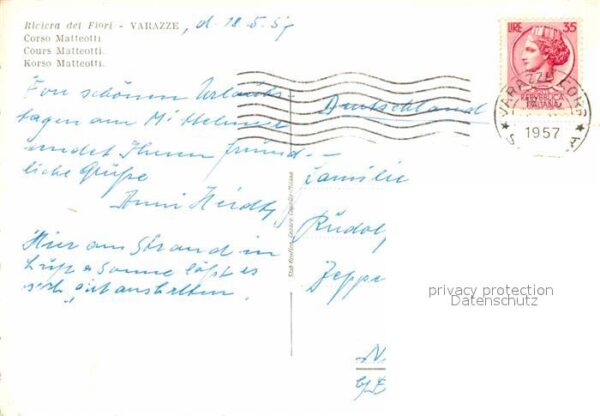 Riviera dei Fiori - VARAZZE, d. 18.5.57
Corso Matteotti.
Cours Matteotti.
Korso Matteotti.
Von schönen Urlaubs-
tagen am Mittelmeer
sendet Ihnen freund-
liche Grüße
Anni
Hier am Strand in
Luft & Sonne läßt es
sich gut aushalten.
Deutschland
Familie
Rudolf
N.
LIRE 35
REPUBBLICA
ITALIANA
VARAZZE
1957
privacy protection
Datenschutz